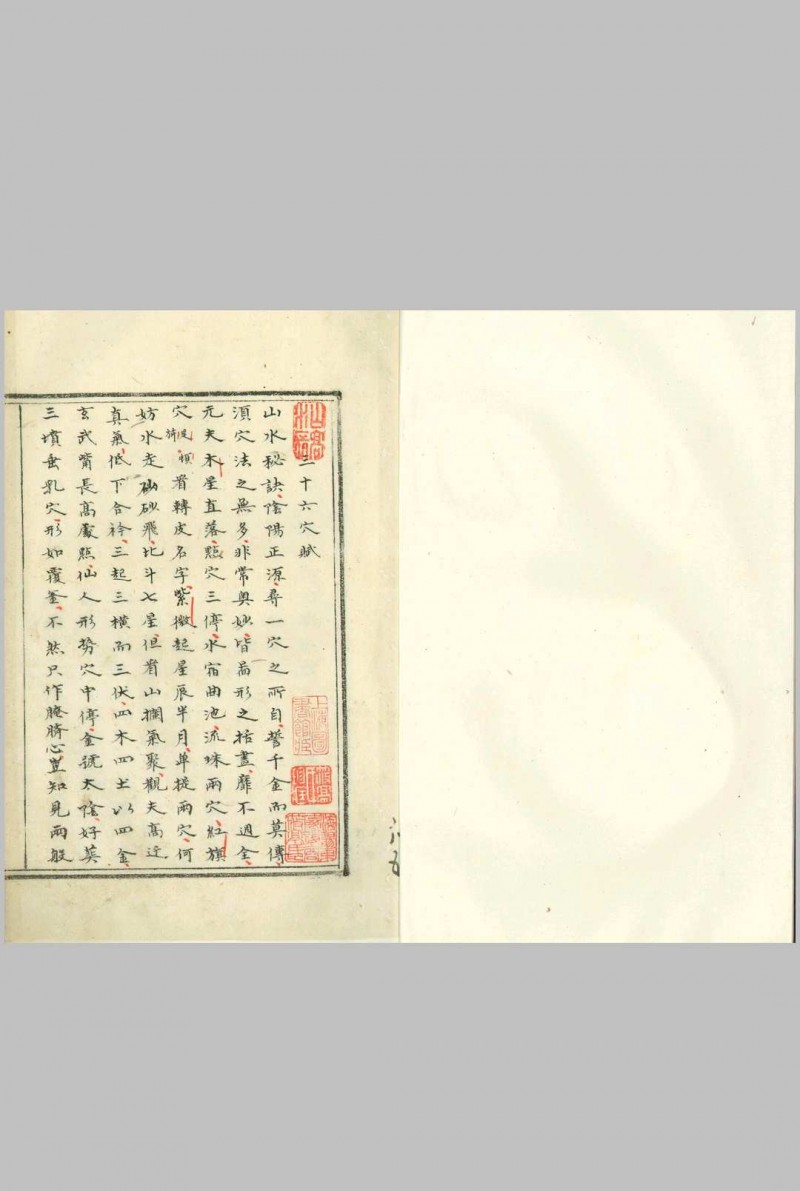 三十六穴賦
山水秘訣陰陽正源尋一穴之所自誓千金而莫傳
須穴法之無多非常奧妙皆畱形之括盡靡不週全
元夫木星直落點穴三停水宿曲池流珠兩穴紅旗
穴 看轉皮名字紫微起星辰半月單提兩穴何
妨水走砂飛北斗七星但看山攔氣聚觀夫高迂
真氣低下合衿三起三橫而三伏四木四土以四金
玄武嘴長高處點仙人形勢穴中停金號太陰好葬
三墳垂乳穴形如覆釜不然只作腌臍心豈知見兩般